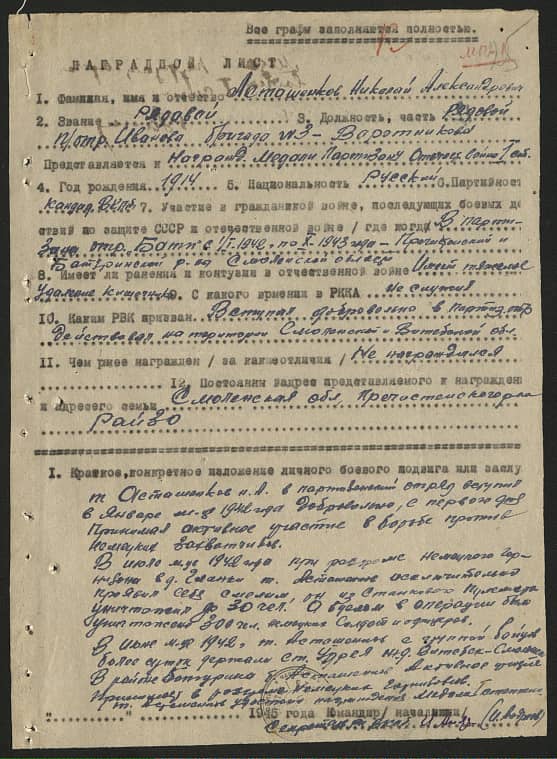 Все графы заполняются полностью.
НАГРАДНОЙ ЛИСТ
1. Фамилия, имя и отчество Асташенков Николай Александрович
2. Звание рядовой 3. Должность, часть рядовой
п/отр. Иванова бригада №3 - Воротникова
Представляется к наград. Медали Партизану Отечес. войны I ст.
4. Год рождения 1914 5. Национальность Русский 6. Партийност
кандид. ВКПб 7. Участие в гражданской войне, последующих боевых де
ствий по защите СССР и отечественной войне / где когда / В парти-
зан. отр. Бати с I 1942 по X-1943 года - Пречистенский и
Батуринский р-на Смоленской области
8. Имеет ли ранения и контузии в отечественной войне Имеет тяжелое
9. С какого времени в РККА не служил
10. Каким РВК призван Вступил добровольно в партиз. отр.
действовал на територии Смоленской и Витебской обл.
11. Чем ранее награжден / за какие отличия / Не награждался
12. Постоянный адрес представляемого к награжден
и адрес его семьи Смоленская обл. Пречистенского р-на
РайЗО
1. Краткое, конкретное изложение личного боевого подвига или заслу
т. Асташенков Н.А. в партизанский отряд вступил
в Январе м-це 1942 года добровольно, с первого дня
принимал активное участие в борьбе против
немецких захватчиков.
В июле м-це 1942 года при разгроме немецкого гар-
низона в д. т. Асташенков исключительно
проявил себя смелым, он из станкового пулемета
уничтожил до 30 чел. А в целом в операции было
уничтожено 300 чел. немецких солдат и офицеров.
В июне м-це 1942 г. т. Асташенков с группой бойцов
более суток держали ст. ж.д. Витебск-Смоленск
В районе Батурино Асташенков Активное участие
принимал в разгроме немецких гарнизонов.
т. Асташенков достоин награждения Медали I степени.
" " 1945 года Командир / начальник /
Секретарь